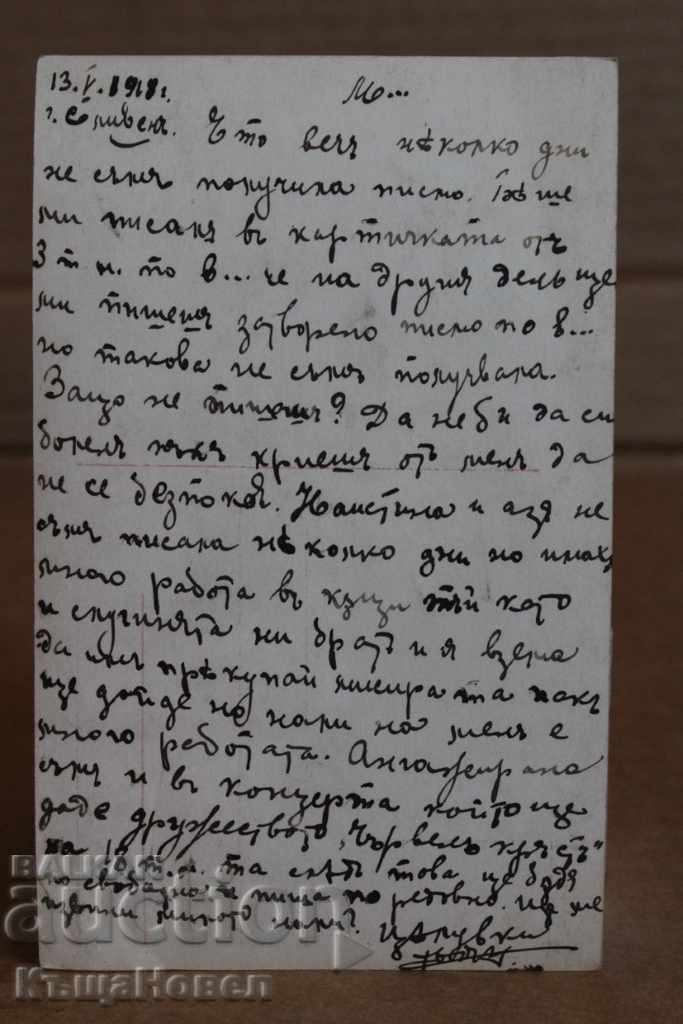 13.V.1918 г. М...
г. Сливенъ. Ето вечъ нѣколко дни
не съмъ получила писмо. ще
ми писалъ въ картичката отъ
3 т. м. по в... че на другия день ще
ми пишешъ затворено писмо по в...
но такова не съмъ получвала.
Защо не пишешъ? Да не би да си
боленъ пъкъ криешъ отъ менъ да
не се безпокоя. Наистина и азъ не
съмъ писала нѣколко дни но имахъ
много работа въ къщи тъй като
и слугинята ни братъ и я взема
да имъ прѣкупай пакъ
ще дойде но нали на менъ е
много работата. Ангажирана
съмъ и въ концерта който ще
даде дружеството „Червенъ кръстъ“
на т. м. та слѣдъ това ще бѫда
по свободна и пиша по редовно.
много нали? Цѣлувки
ВАШИЯТ
auction
КъщаНовел